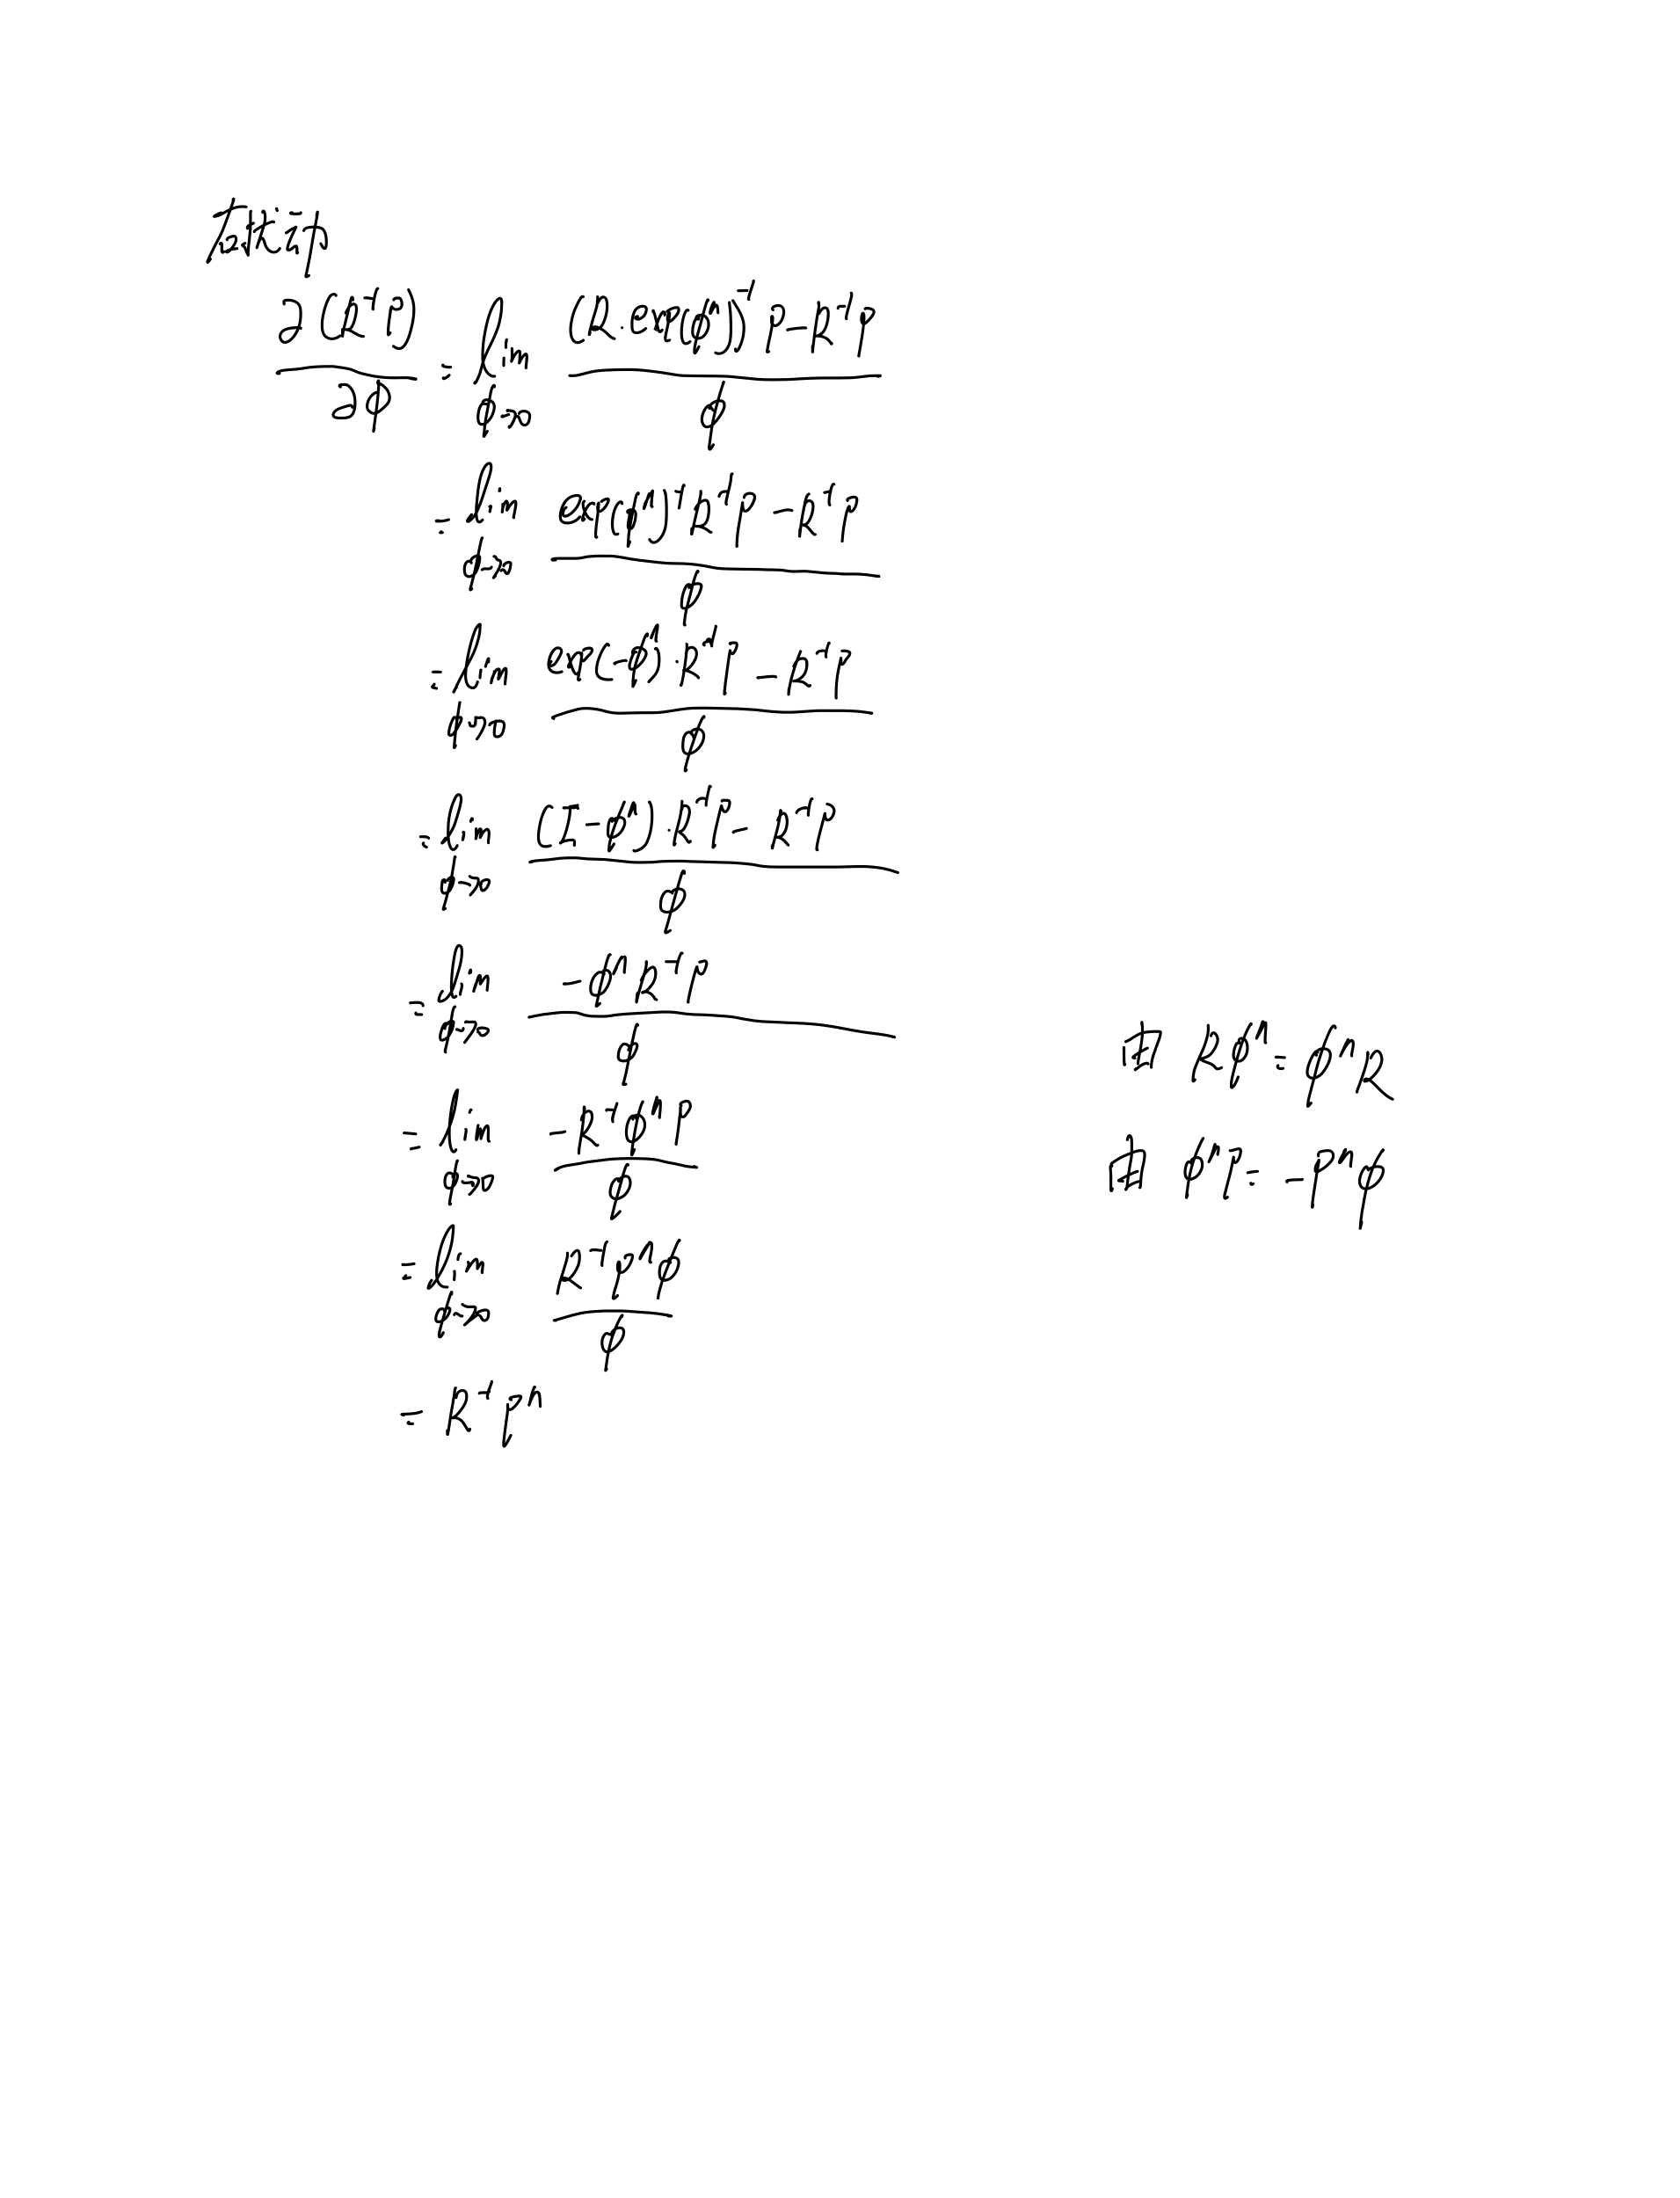 右扰动
∂(R⁻¹P)/∂φ = lim φ→0 ((R·exp(φ^))⁻¹P - R⁻¹P)/φ
= lim φ→0 (exp(φ^)⁻¹R⁻¹P - R⁻¹P)/φ
= lim φ→0 (exp(-φ^)·R⁻¹P - R⁻¹P)/φ
= lim φ→0 ((I-φ^)·R⁻¹P - R⁻¹P)/φ
= lim φ→0 (-φ^R⁻¹P)/φ
用 Rφ^ = φ^R
= lim φ→0 (-R⁻¹φ^P)/φ
用 φ^P = -P^φ
= lim φ→0 (R⁻¹P^φ)/φ
= R⁻¹P^